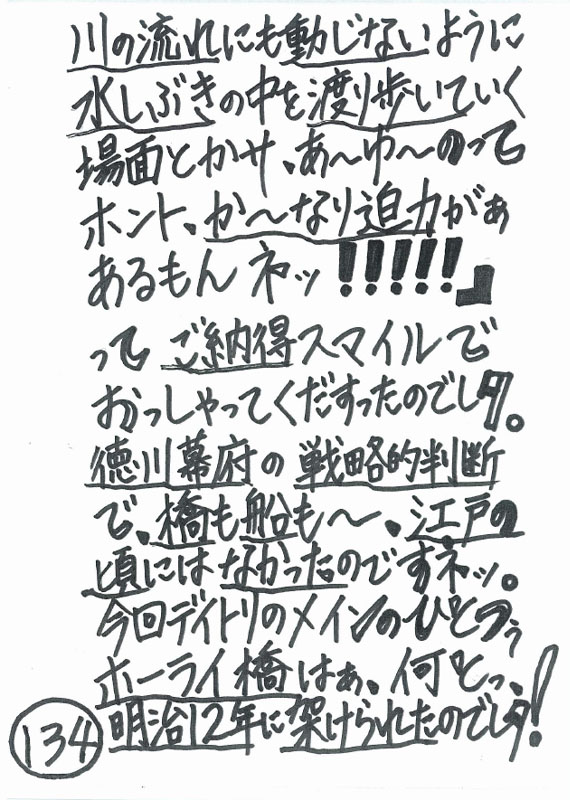 川の流れにも動じないように
水しぶきの中を渡り歩いていく
場面とかサ、あ〜ゆ〜のって
ホント、か〜なり迫力がぁ
あるもんネッ!!!!!」
って ご納得スマイルで
おっしゃってくだすったのでしタ。
徳川幕府の 戦略的判断
で、橋も船も〜、江戸の
頃にはなかったのですネッ。
今回デイトリのメインのひとつぅ
ホーライ橋はぁ、何とっ、
明治12年に架けられたのでしタ!
134